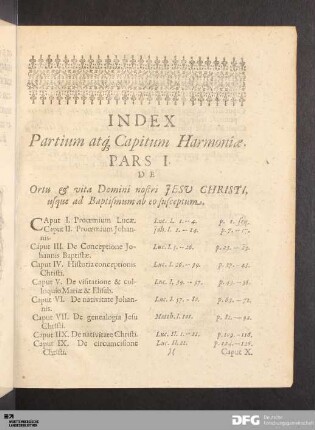 INDEX
Partium atq; Capitum Harmoniæ.
PARS I.
DE
Ortu & vita Domini nostri JESU CHRISTI,
usque ad Baptismum ab eo susceptum.
CAput I. Prooemium Lucæ. Luc. I. 1.--4. p. 1. seq.
Caput II. Prooemium Johannis. Joh. I. 1.--14.
Caput III. De Conceptione Johannis Baptistæ. Luc. I. 5.--26.
Caput IV. Historia conceptionis Christi. Luc. I. 26.--39.
Caput V. De visitatione & colloquio Mariæ & Elisab. Luc. I. 39.--57.
Caput VI. De nativitate Johann. Luc. I. 57.--
Caput VII. De genealogia Jesu Christi. Matth. I.
Caput IIX. De nativitate Christi. Luc. II. 1.--21.
Caput IX. De circumcisione Christi. Luc. II. 21.
)( Caput X.
DFG Deutsche
Forschungsgemeinschaft